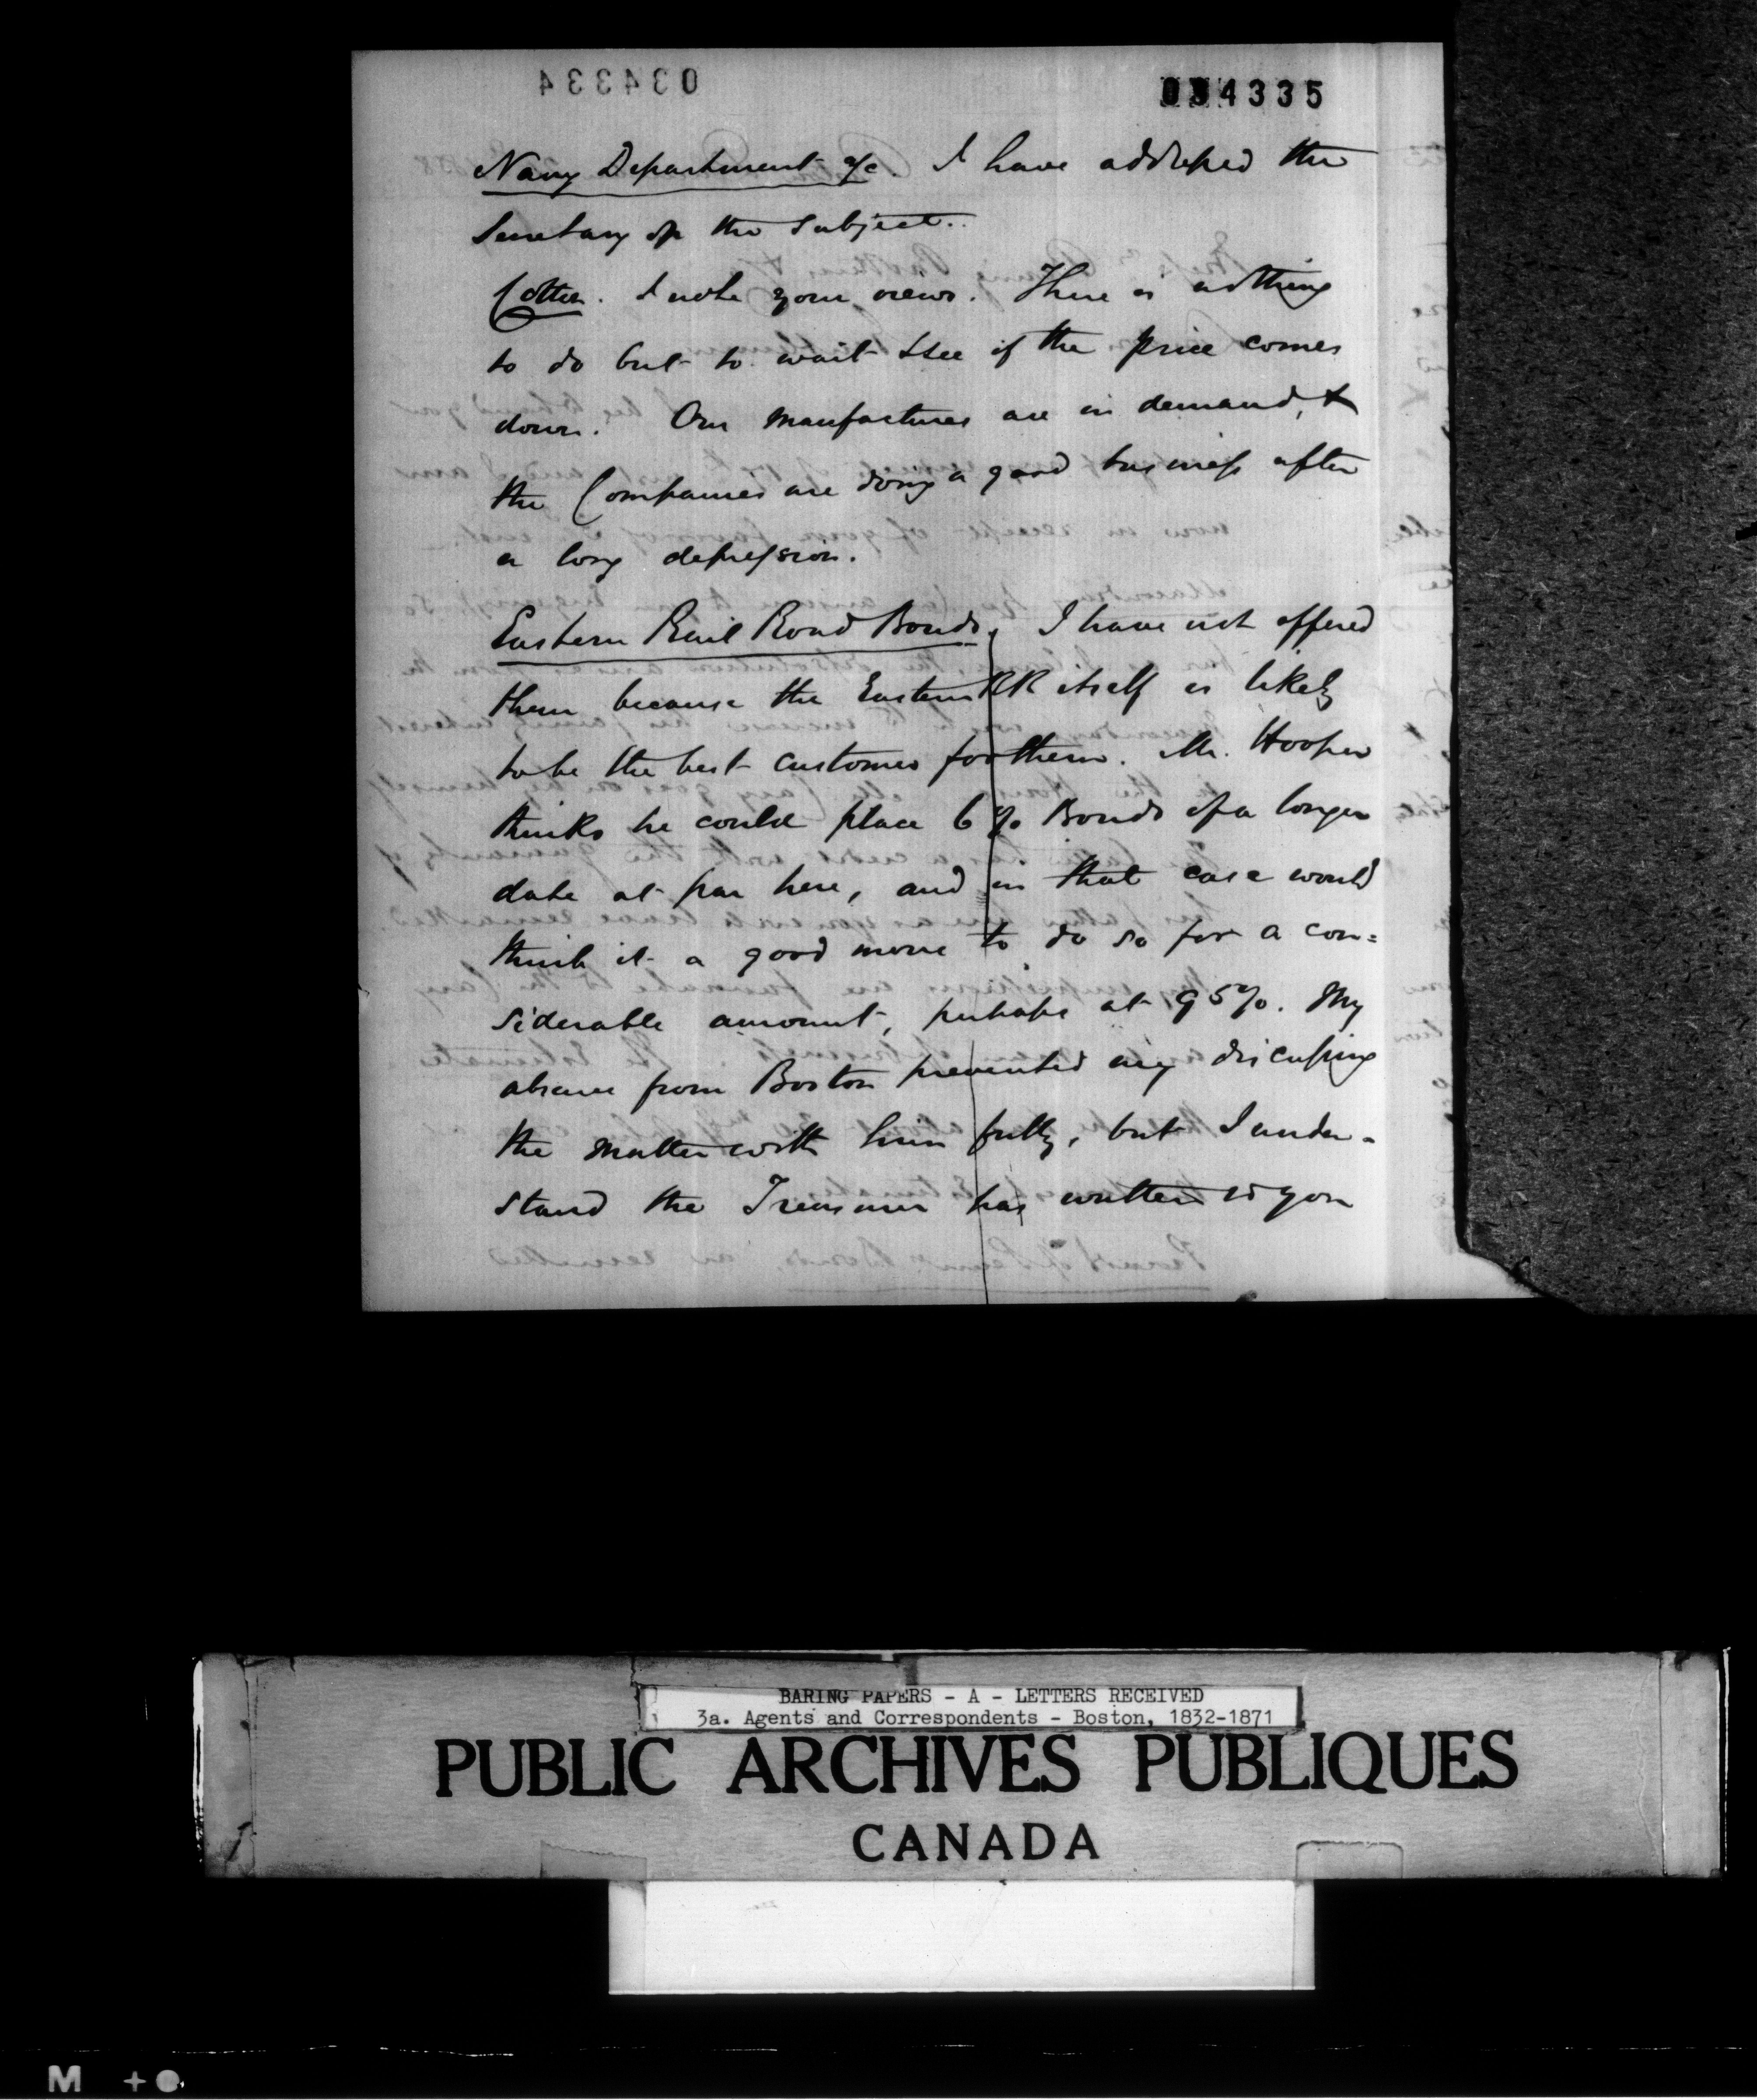 034334
034335
Navy Department a/c. I have addressed the
Secretary on the subject.
Cotton. I note your views. There is nothing
to do but to wait & see if the price comes
down. Our manufactures are in demand, &
the Companies are doing a good business after
a long depression.
Eastern Rail Road Bonds, I have not offered
them because the Eastern RR itself is likely
to be the best customer for them. Mr. Hooper
thinks he could place 6 % Bonds of a longer
date at par here, and in that case would
think it a good move to do so for a con=
siderable amount, perhaps at 95%. My
absence from Boston prevented my discussing
the matter with him fully, but I under-
stand the Treasurer has written to you
BARING PAPERS - A - LETTERS RECEIVED
3a. Agents and Correspondents - Boston, 1832-1871
PUBLIC ARCHIVES PUBLIQUES
CANADA
M +